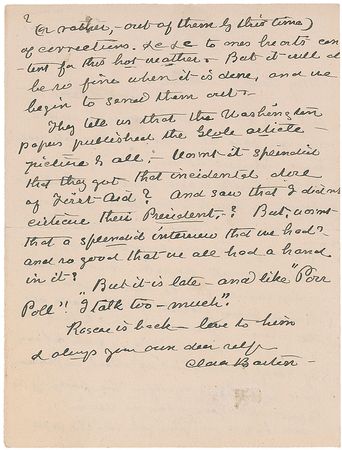 2
(or rather, - out of them by this time)
of corrections. &c &c to ones hearts con
tent for this hot weather. But it will
be so fine when it is done, and we
begin to send them out.
They tell us that the Washington
papers published the Globe article -
picture & all; - Wasnt it splendid
that they got that incidental
of First Aid? And saw that I didn't
criticise their President,? But, wasnt
that a splendid interview that we had?
and so good that we all had a hand
in it?
"But it is late - and like "Poor
Poll"! I talk too - much".
Roscoe is back - love to him
& always your own dear self
Clara Barton -